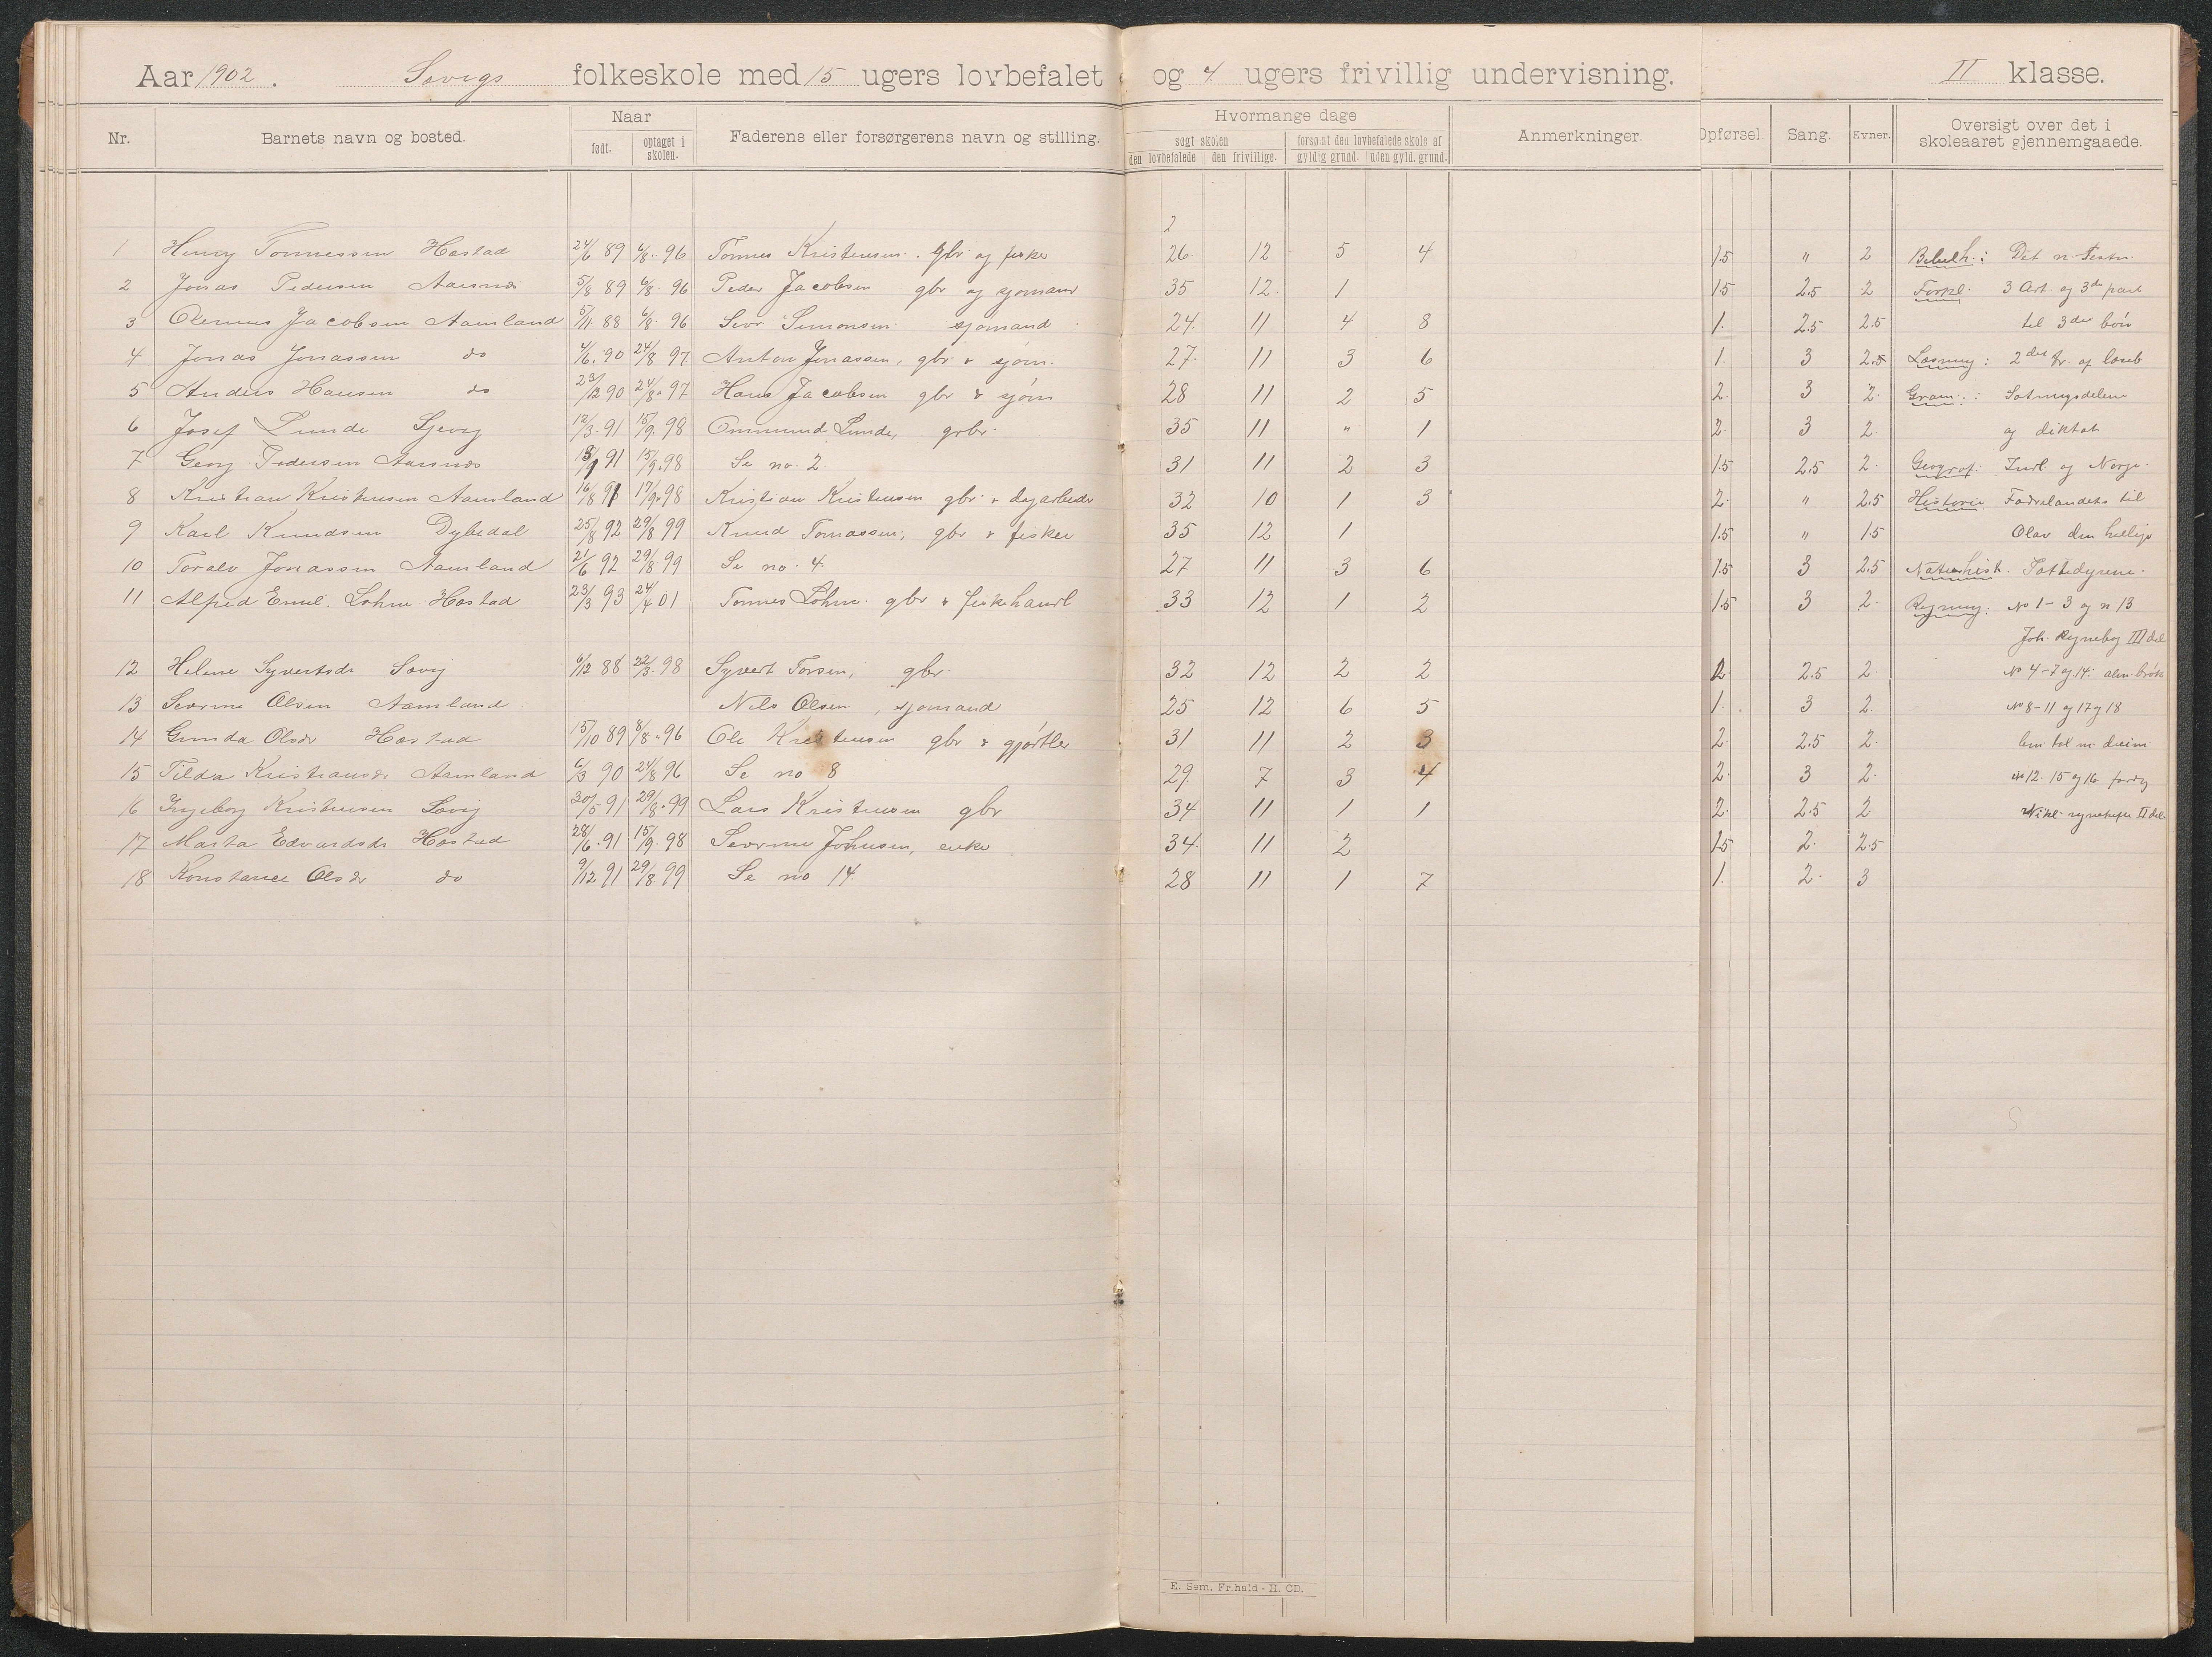 Aar 1902. Søvigs folkeskole med 15 ugers lovbefalet og 4 ugers frivillig undervisning. II klasse.
Nr. Barnets navn og bosted. Naar født. optaget i skolen. Faderens eller forsørgerens navn og stilling. Hvormange dage søgt skolen den lovbefalede den frivillige. forsømt den lovbefalede skole af gyldig grund. uden gyld. grund. Anmerkninger. Opførsel. Sang. Evner. Oversigt over det i skoleaaret gjennemgaaede.
2
1 Henry Tønnessen Høstad 24/6 89 6/8 96 Tønnes Kristensen. gbr og fisker 26 12 5 4 1.5 " 2 Bibelh.: Det n. Testm.
2 Jonas Pedersen Aarsnæs 5/8 89 6/8 96 Peder Jacobsen gbr og sjømand 35 12 1 1.5 2.5 2 Forkl. 3 Art. og 3de part
3 Olemus Jacobsen Aamland 5/11 88 6/8 96 Simonsen sjømand 24 11 4 8 1. 2.5 2.5 til 3die bøn
4 Jonas Jonassen do 4/6 90 24/8 97 Anton Jonassen, gbr & sjøm. 27 11 3 6 1. 3 2.5 Læsning: 2det af læseb
5 Anders Hansen do 23/12 90 24/8 97 Hans Jacobsen gbr & sjøm 28 11 2 5 2. 3 2. Gram.: Sætningsdelene
6 Josef Lunde 12/3 91 15/9 98 Ommund Lunde, grbr. 35 11 " 1 2. 3 2. og diktat
7 Georg Pedersen Aarsnæs 91 15/9 98 Se no. 2. 31 11 2 3 1.5 2.5 2. Geograf: Indl. og Norge.
8 Kristian Kristensen Aamland 16/8 91 17/9 98 Kristian Kristensen gbr. & dagarbeider 32 10 1 3 2. " 2.5 Historie Fædrelandets til
9 Karl Knudsen Dybedal 25/8 92 29/8 99 Knud Tomassen, gbr & fisker 35 12 1 1.5 " 1.5 Olav den hellige
10 Toralv Jonassen Aamland 21/6 92 29/8 99 Se no. 4. 27 11 3 6 1.5 3 2.5 Naturhist. Pattedyrene.
11 Alfred Emil Lohne Høstad 23/3 93 24/4 01 Tønnes Lohne gbr & fiskehandl 33 12 1 2 1.5 3 2. Regning: No 1-3 og n 13
Joh. Regnebog III del
12 Helene Syvertsdr Søvig 6/12 88 22/3 98 Syvert Torsen, gbr. 32 12 2 2 2. 2.5 2. No 4-7 og 14. alm. brøk
13 Severine Olsen Aamland Nils Olsen, sjømand 25 12 6 5 1. 3 2. No 8-11 og 17 og 18
14 Gunda Olsdr Høstad 15/10 89 8/8 96 Ole Kristensen gbr & gjørtler 31 11 2 3 2. 2.5 2.
15 Tilda Kristiansdr Aamland 6/3 90 24/8 96 Se no 8 29. 7 3 4 2. 3 2. No 12. 15 og 16.
16 Ingeborg Kristensen Søvig 30/5 91 29/8 99 Lars Kristensen gbr 34 11 1 1 2. 2.5 2 Nikl. regnehefte II del
17 Marta Edvardsdr Høstad 28/6 91 15/9 98 Severine Johnsen, enke 34. 11 2 1.5 2. 2.5
18 Konstance Olsdr do 9/12 91 29/8 99 Se no 14. 28 11 1 7 1. 2. 3
E. Sem, Fr.hald - H. CD.